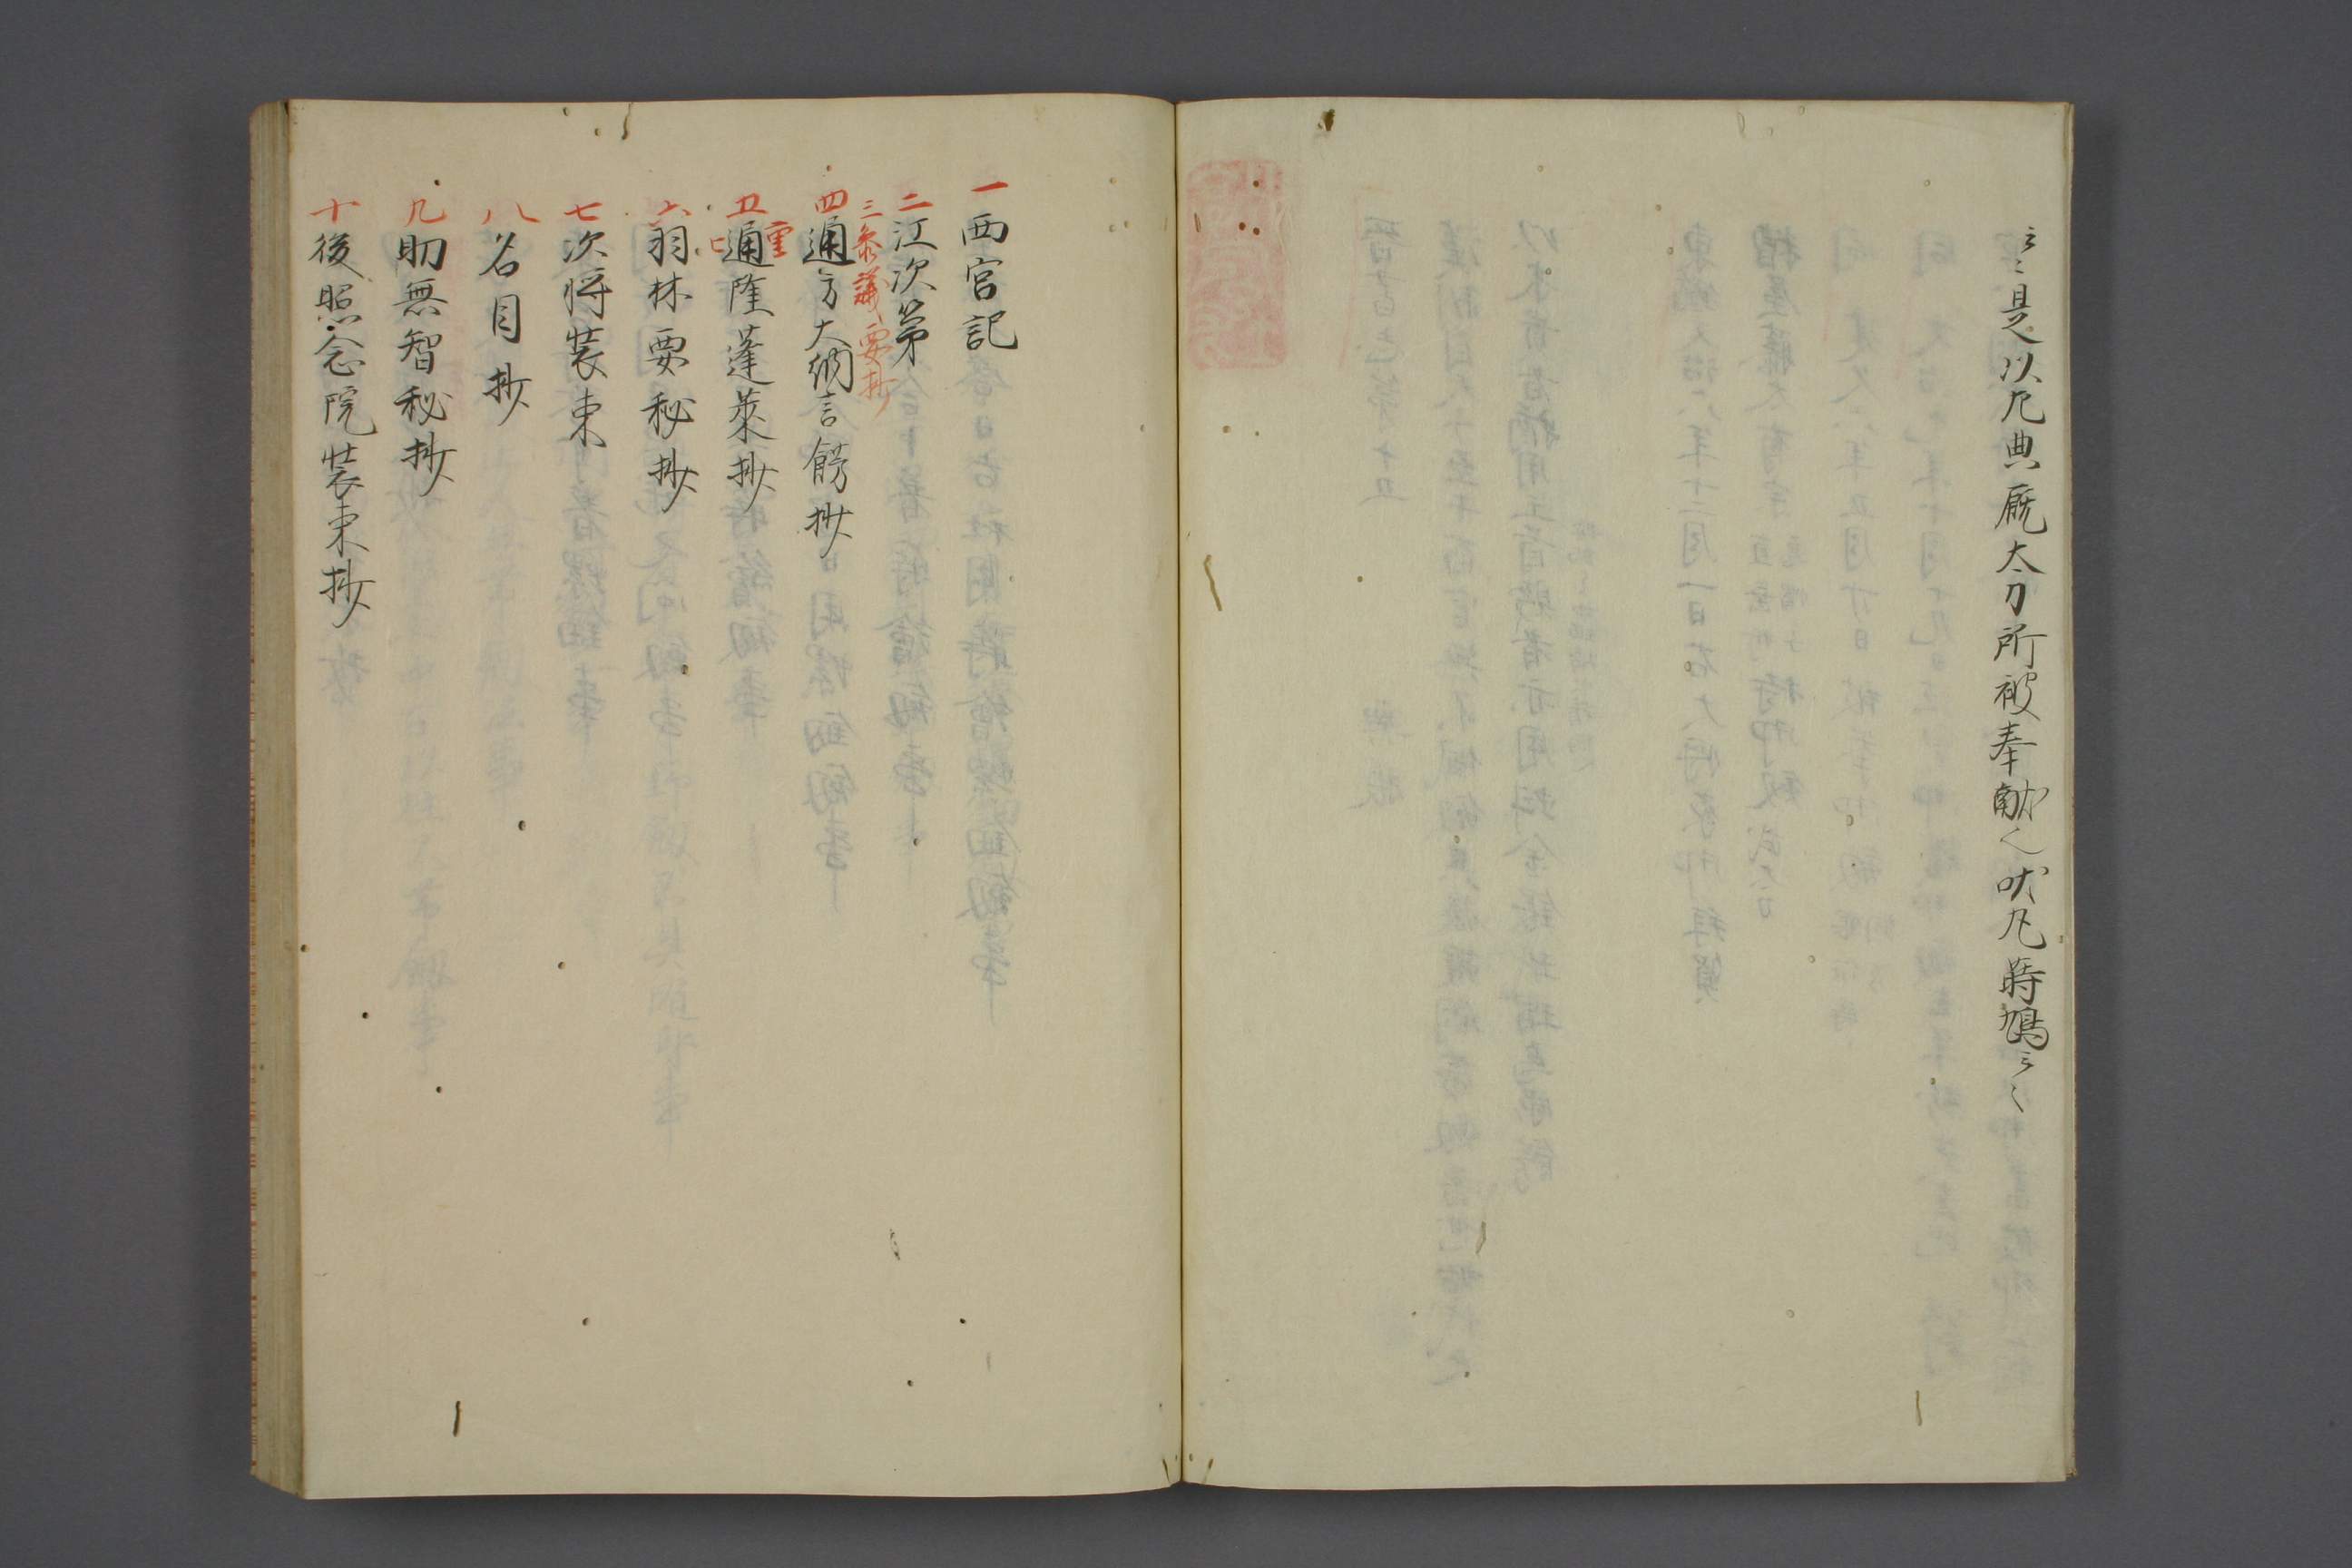 云々是以凡典厩太刀所被奉献之状凡蒔鳩云々
一西官記
二江次第
三参議要抄
四通方大納言餝抄
五通隆蓬莱抄
重
六羽林要秘抄
七次将装束
八名目抄
九助無智秘抄
十後照念院装束抄